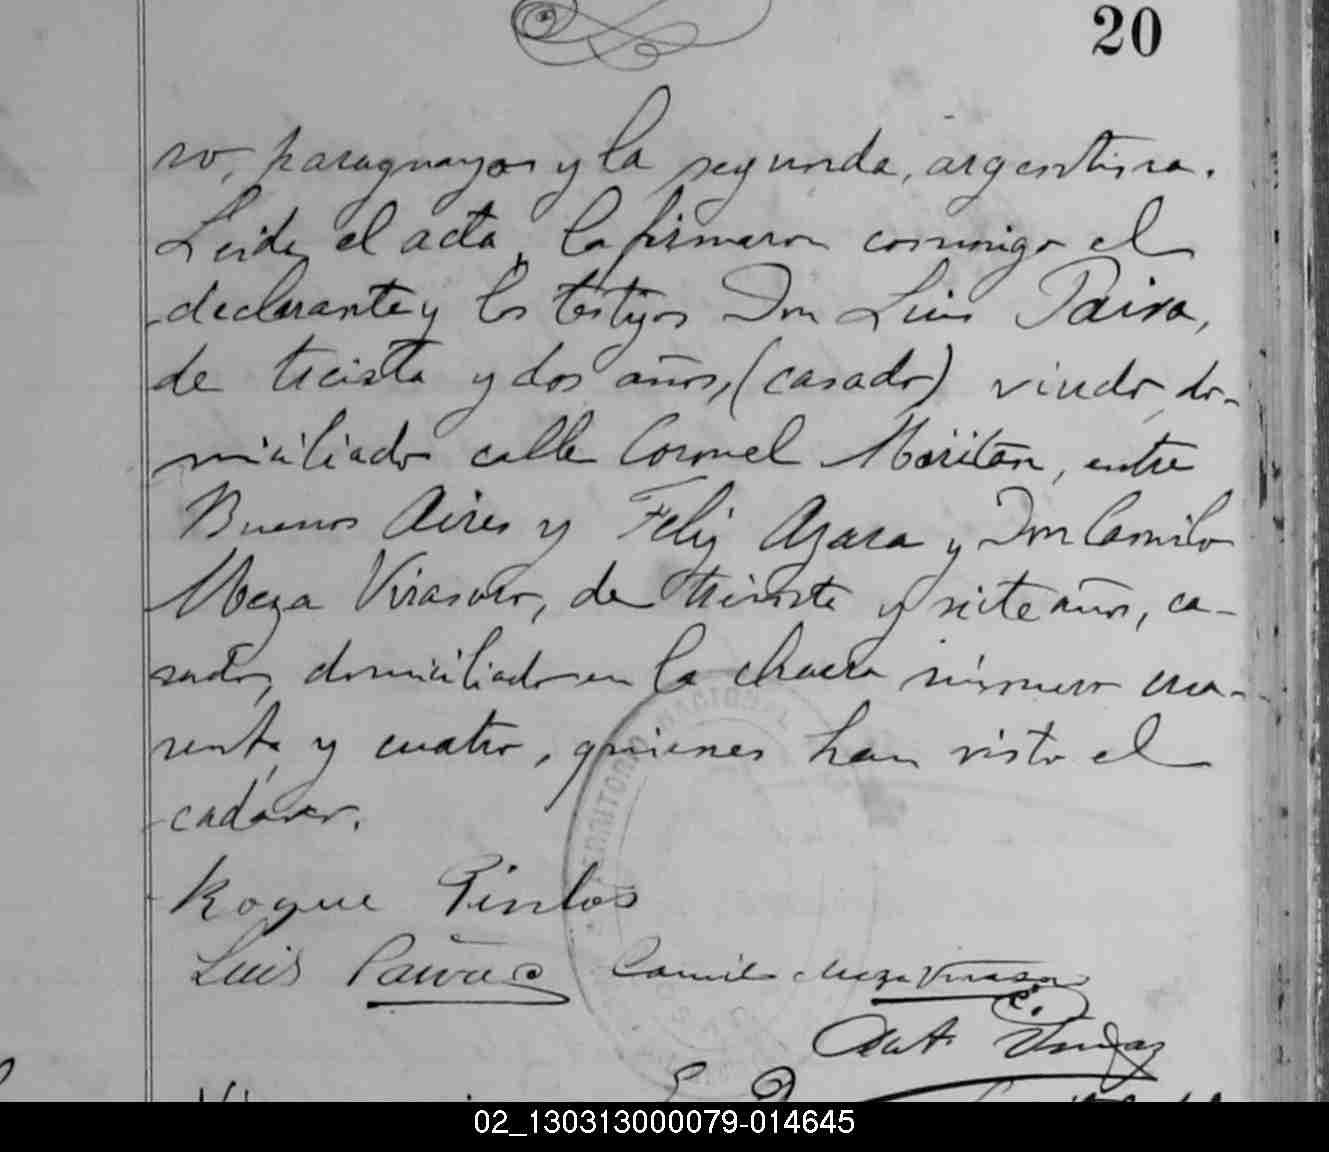 20
ro, paraguayos y la segunda, argentina.
Leida el acta, la firmaron conmigo el
declarante y los testigos Don Luis Paiva,
de treinta y dos años, (casado) viudo, do-
miciliado calle Coronel Moritán, entre
Buenos Aires y Feliz Azara y Don Camilo
Meza Virasoro, de treinta y siete años, ca-
sado, domiciliado en la chacra número cua-
renta y cuatro, quienes han visto el
cadáver.
Roque Pintos
Luis Paiva Camilo Meza Virasoro
TERRITORIO NACIONAL
02_130313000079-014645